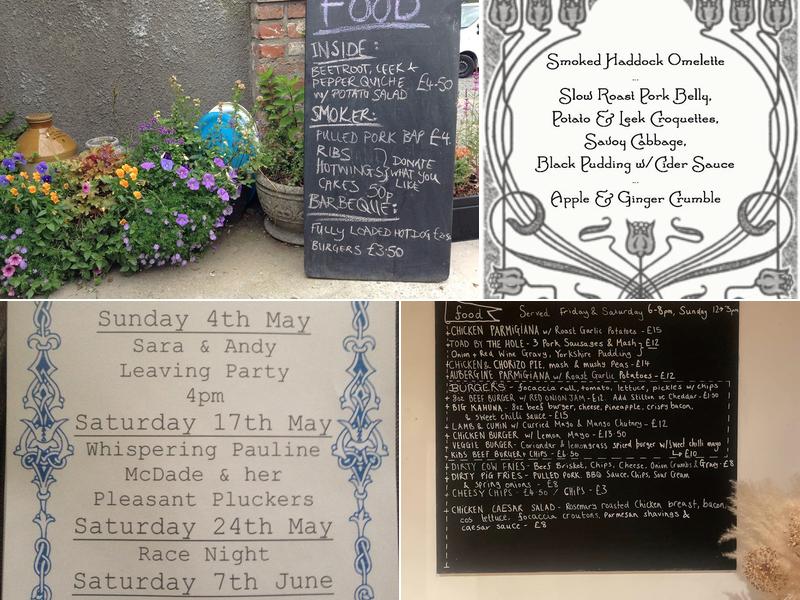 FOOD
INSIDE:
BEETROOT, LEEK &
PEPPER QUICHE £4.50
w/ POTATO SALAD
SMOKER:
PULLED PORK BAP £4.
RIBS
HOTWINGS DONATE WHAT YOU LIKE
CAKES 50p
BARBEQUE:
FULLY LOADED HOTDOG
BURGERS £3.50
Smoked Haddock Omelette
...
Slow Roast Pork Belly,
Potato & Leek Croquettes,
Savoy Cabbage,
Black Pudding w/ Cider Sauce
...
Apple & Ginger Crumble
Sunday 4th May
Sara & Andy
Leaving Party
4pm
Saturday 17th May
Whispering Pauline
McDade & her
Pleasant Pluckers
Saturday 24th May
Race Night
Saturday 7th June
food Served Friday & Saturday 6-8pm, Sunday 12-3pm
CHICKEN PARMIGIANA w/ Roast Garlic Potatoes - £15
TOAD BY THE HOLE - 3 Pork Sausages & Mash - £12
Onion + Red Wine Gravy, Yorkshire Pudding
CHICKEN & CHORIZO PIE, mash & mushy Peas - £14
AUBERGINE PARMIGIANA w/ Roast Garlic Potatoes - £12
BURGERS - focaccia roll, tomato, lettuce, pickles w/ chips
8oz BEEF BURGER w/ RED ONION JAM - £12. Add Stilton or Cheddar - £1.50
BIG KAHUNA - 8oz beef burger, cheese, pineapple, crispy bacon,
& sweet chilli sauce - £15
LAMB & CUMIN w/ Curried Mayo & Mango Chutney - £12
CHICKEN BURGER w/ Lemon Mayo - £13.50
VEGGIE BURGER - Coriander & lemongrass spiced burger w/ sweet chilli mayo
KIDS BEEF BURGER + CHIPS - £6.50 £10
DIRTY COW FRIES - Beef Brisket, Chips, Cheese, Onion Crumbs & Gravy - £8
DIRTY PIG FRIES - PULLED PORK, BBQ Sauce, Chips, Sour Cream
& spring onions - £8
CHEESY CHIPS - £4.50 / CHIPS - £3
CHICKEN CAESAR SALAD - Rosemary roasted Chicken breast, bacon,
cos lettuce, focaccia croutons, parmesan shavings &
caesar sauce - £8